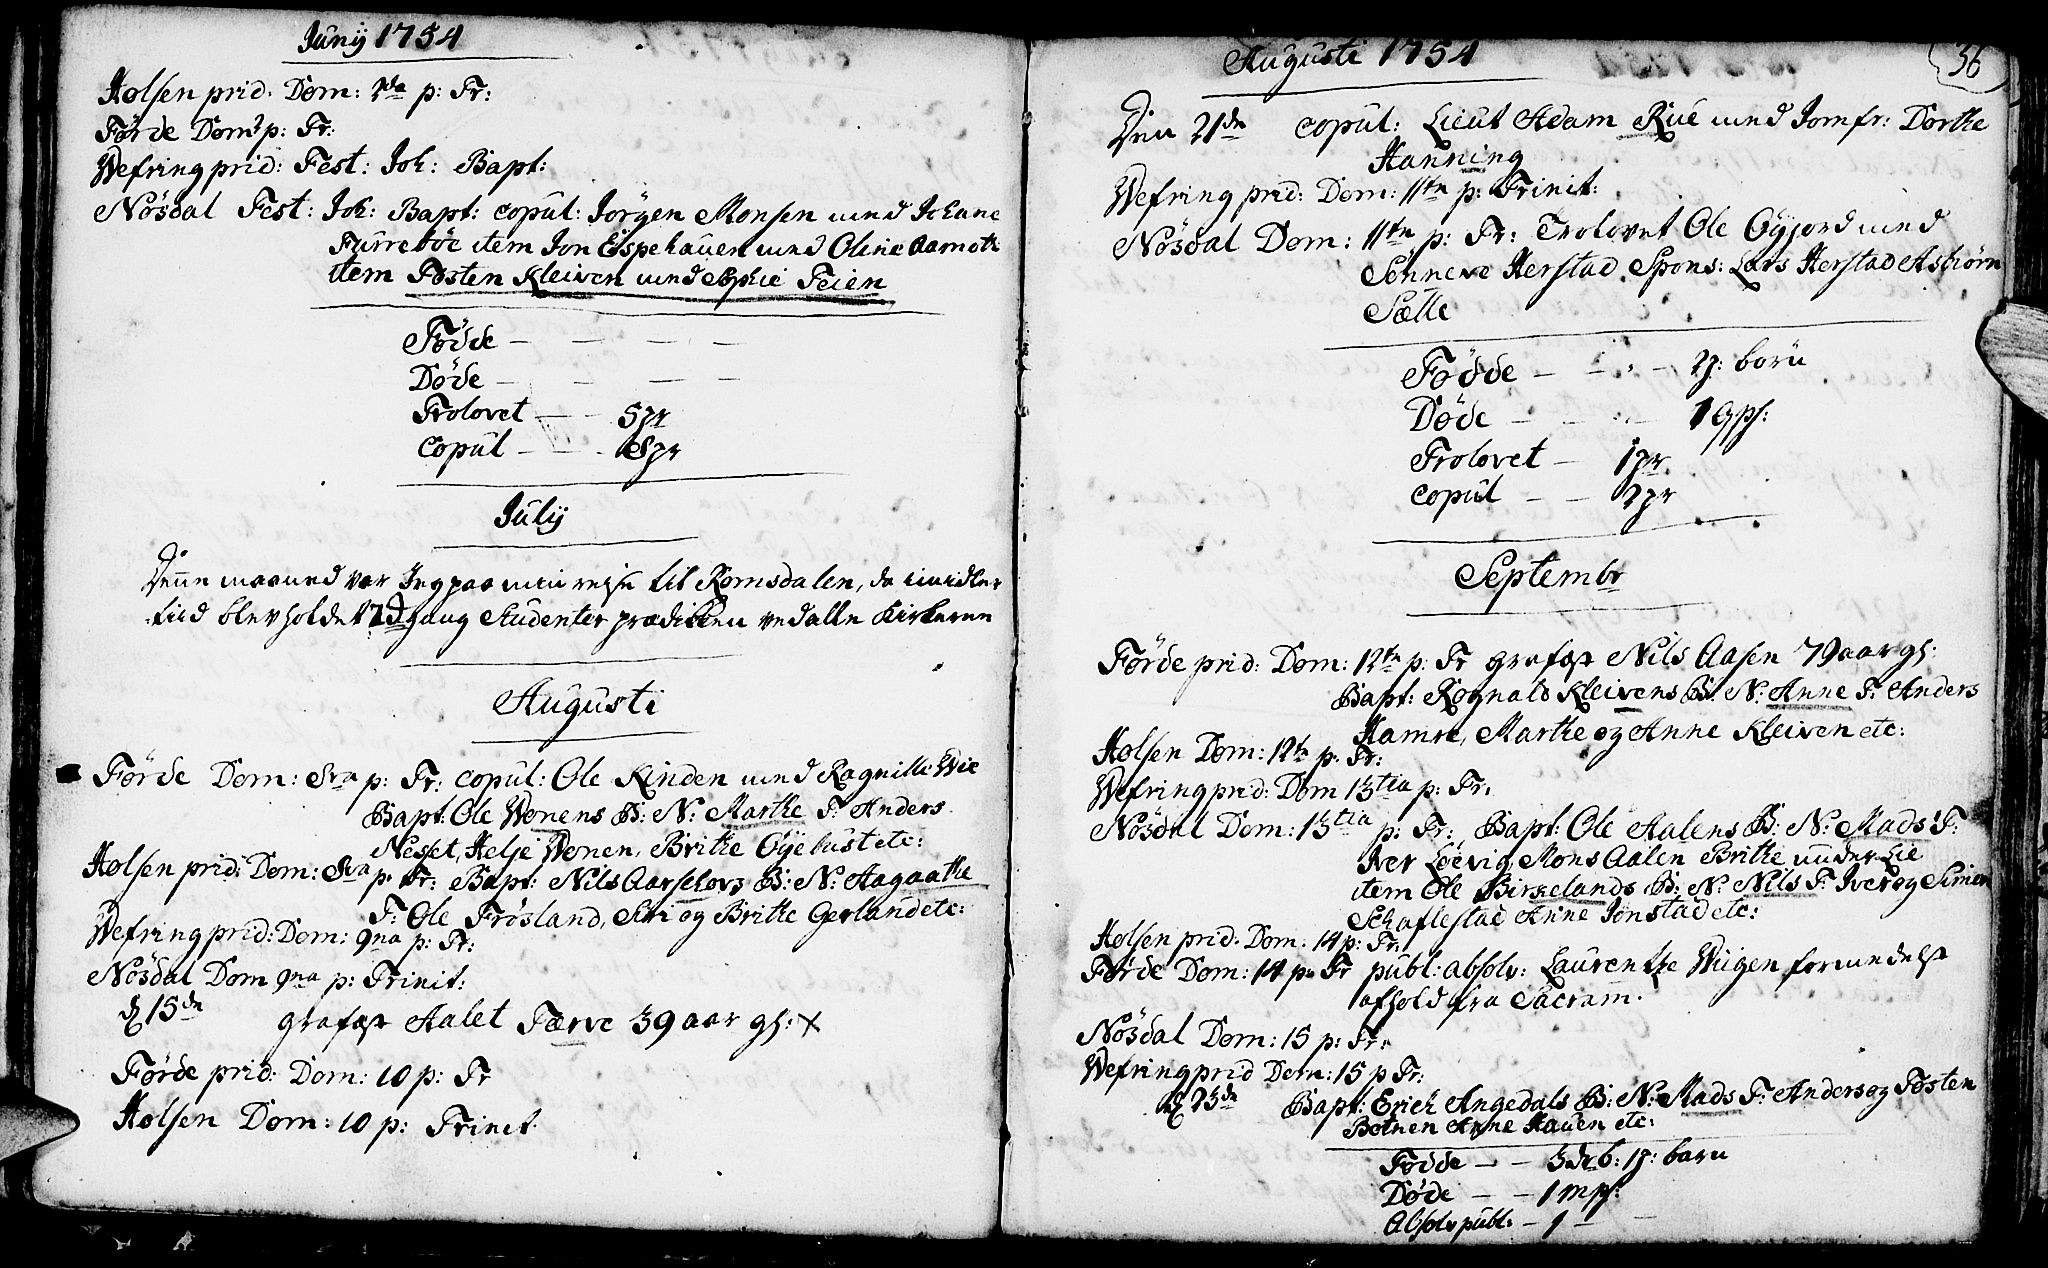 Junij 1754
Holsen prid: Dom: 2da p: Tr:
Førde Dom: p: Tr:
Wefring prid: Fest: Joh: Bapt:
Nösdal Fest: Joh: Bapt: copul: Jørgen Monsen med Johane
Furreböe item Jon Espehauen med Oline Aamoth
item Tosten Kleiven med Sophie Feien
Födde — — — —
Döde — — — —
Trolovet — — 5 pr
copul — — 8 pr
Julij
Denne maaned var Jeg paa min reise til Romsdalen, da imidler
tiid blev holdet gang Studenter prædiken ved alle Kirkerne
Augusti
Förde Dom: 8va p: Tr: copul: Ole Kinden med Ragnille Wie
Bapt: Ole Wonens B: N: Marthe F: Anders
Neset, Helje Wonen, Brithe Öyebust etc:
Holsen prid: Dom: 8va p: Tr: Bapt: Nils Aarschovs B: N: Aagaathe
F: Ole Frösland, Siri og Brithe Gerland etc:
Wefring prid: Dom: 9na p: Tr:
Nösdal Dom 9na p: Trinit:
d 15de grafæst Aalet Færve 39 aar gl: x
Förde prid: Dom: 10 p: Tr
Holsen Dom: 10 p: Trinit:
36
Augusti 1754
Den 21de copul: Lieut Adam Rue med Jomfr: Dorthe
Hanning
Wefring prid: Dom: 11te p: Trinit:
Nösdal Dom: 11te p: Tr: Trolovet Ole Öygord med
Sönneve Herstad. Spons: Lars Herstad Asbiörn
Sælle
Födde — — — 1 p: børn
Döde — — — 1 qvps:
Trolovet — 1 pr
copul — — 2 pr
Septembr
Förde prid: Dom: 12te p: Tr grafæst Nils Aasen 79 aar gl:
Bapt: Rognald Kleivens B: N: Anne F: Anders
Hamre, Marthe og Anne Kleiven etc:
Holsen Dom: 12te p: Tr:
Wefring prid: Dom 13tia p: Tr:
Nösdal Dom: 13tia p: Tr: Bapt: Ole Aalens B: N: Mads F:
Iver Löevig Mons Aalen Brithe under Lie
item Ole Birkelands B: N: Nils F: Iver og Simen
Schaflestad Anne Jonstad etc:
Holsen prid: Dom: 14 p: Tr:
Førde Dom: 14 p: Tr publ: absolv: Laurentze Wiigen formedelst
afhold fra Sacram:
Nösdal Dom: 15 p: Tr:
Wefring prid Dom: 15 p Tr:
d 23de Bapt: Erich Angedals B: N: Mads F: Anders og Tosten
Botnen Anne Hauen etc:
Födde — — 3 drb: 1 p: barn
Döde — — 1 mps:
Absolv publ: — 1 —